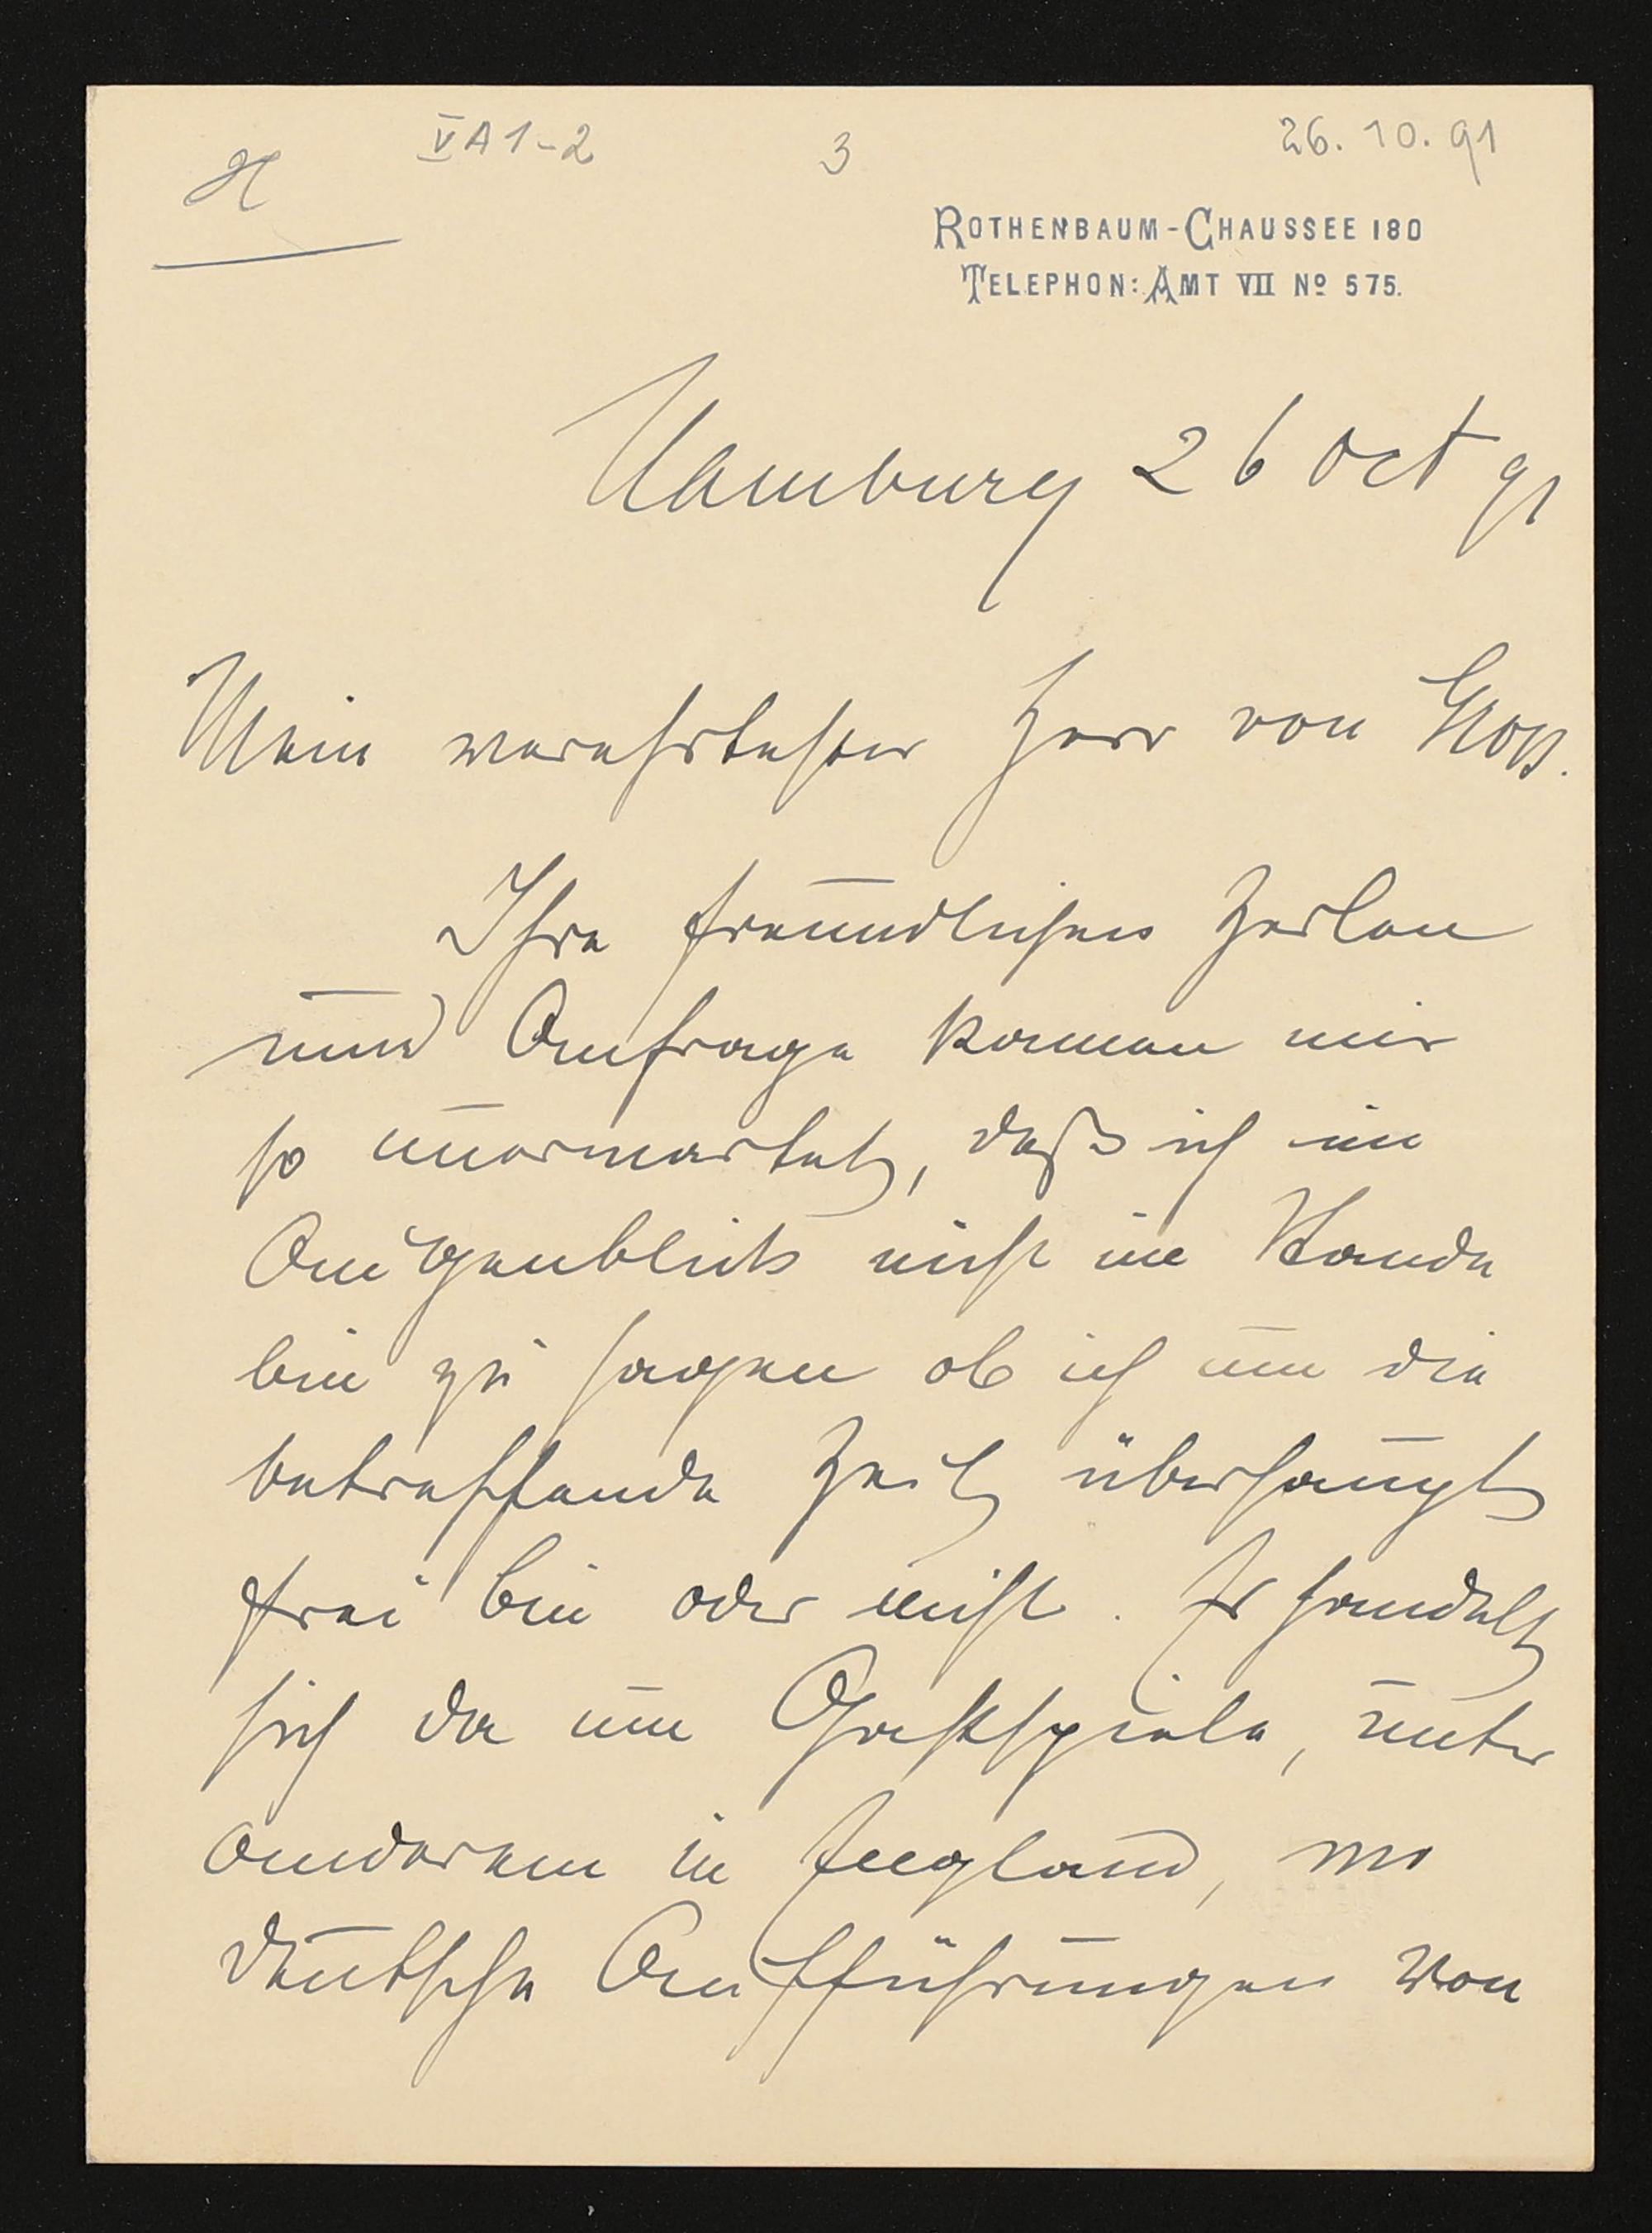 VA1-2 3 26.10.91
H
ROTHENBAUM-CHAUSSEE 180
TELEPHON: AMT VII No 575.
Hamburg 26 Oct 91
Mein verehrtester Herr von Groß.
Ihre freundlichen Zeilen
und Anfrage kamen mir
so unerwartet, daß ich im
Augenblick nicht im Stande
bin zu sagen ob ich um die
betreffende Zeit überhaupt
frei bin oder nicht. Es handelt
sich da um Gastspiele, unter
anderem in England, wo
deutsche Aufführungen von